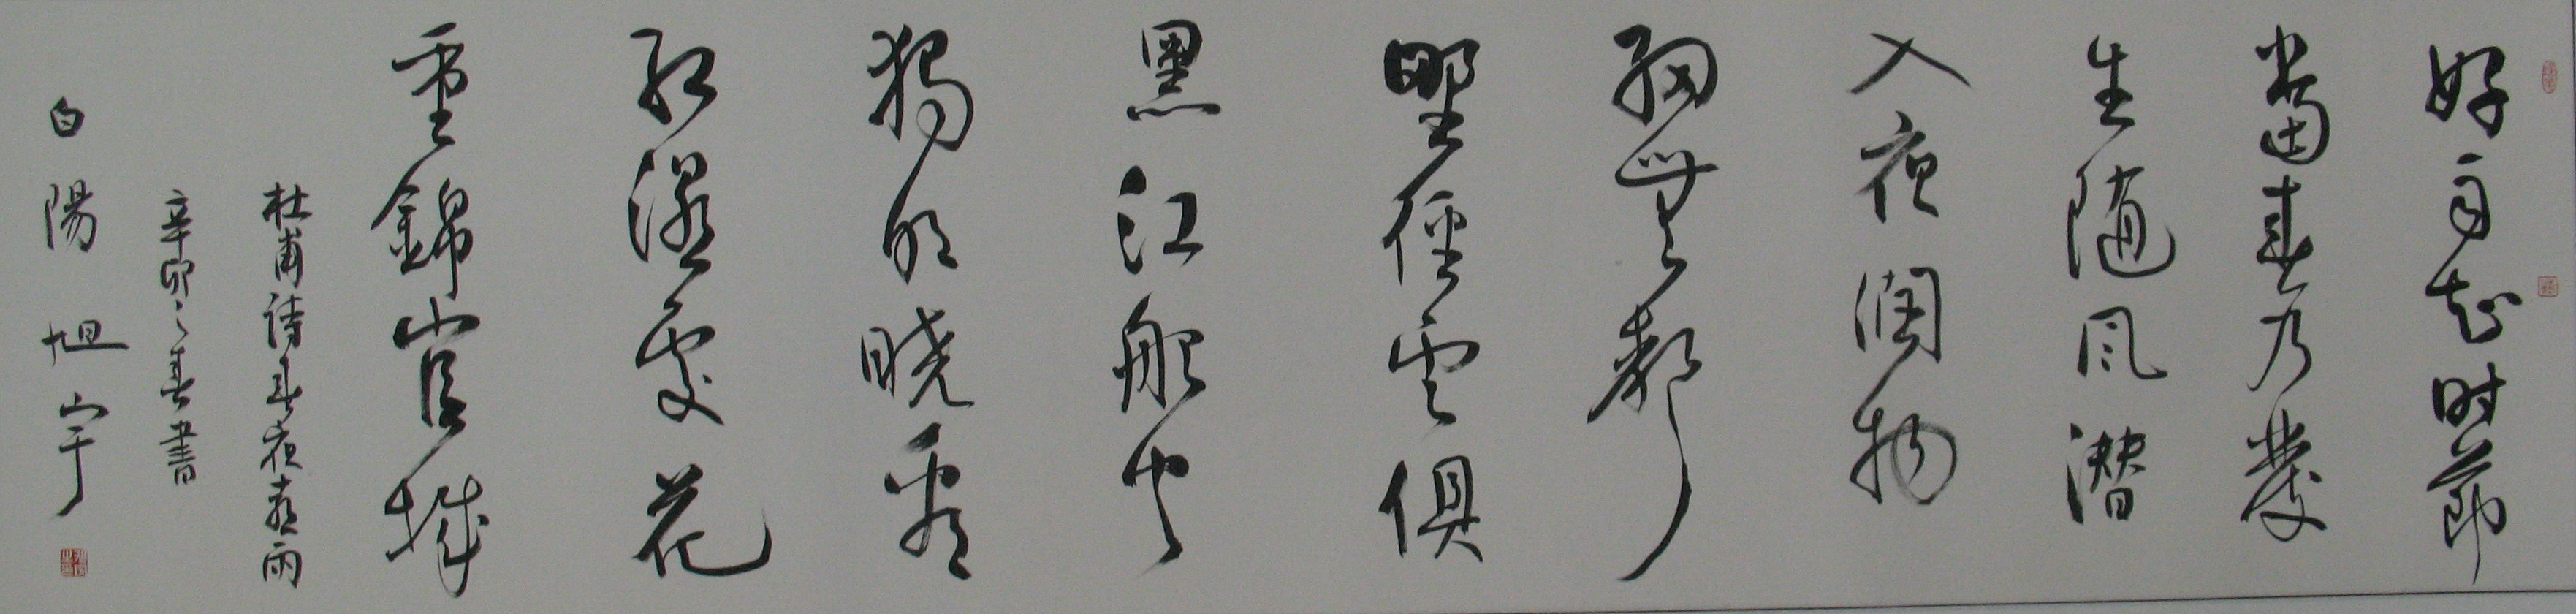 好雨知时節
當春乃發
生随风潜
入夜润物
細無聲
野徑雲俱
黑江船火
獨明晓看
紅濕處花
重錦官城
杜甫詩春夜喜雨
辛卯之春書
白陽旭宇